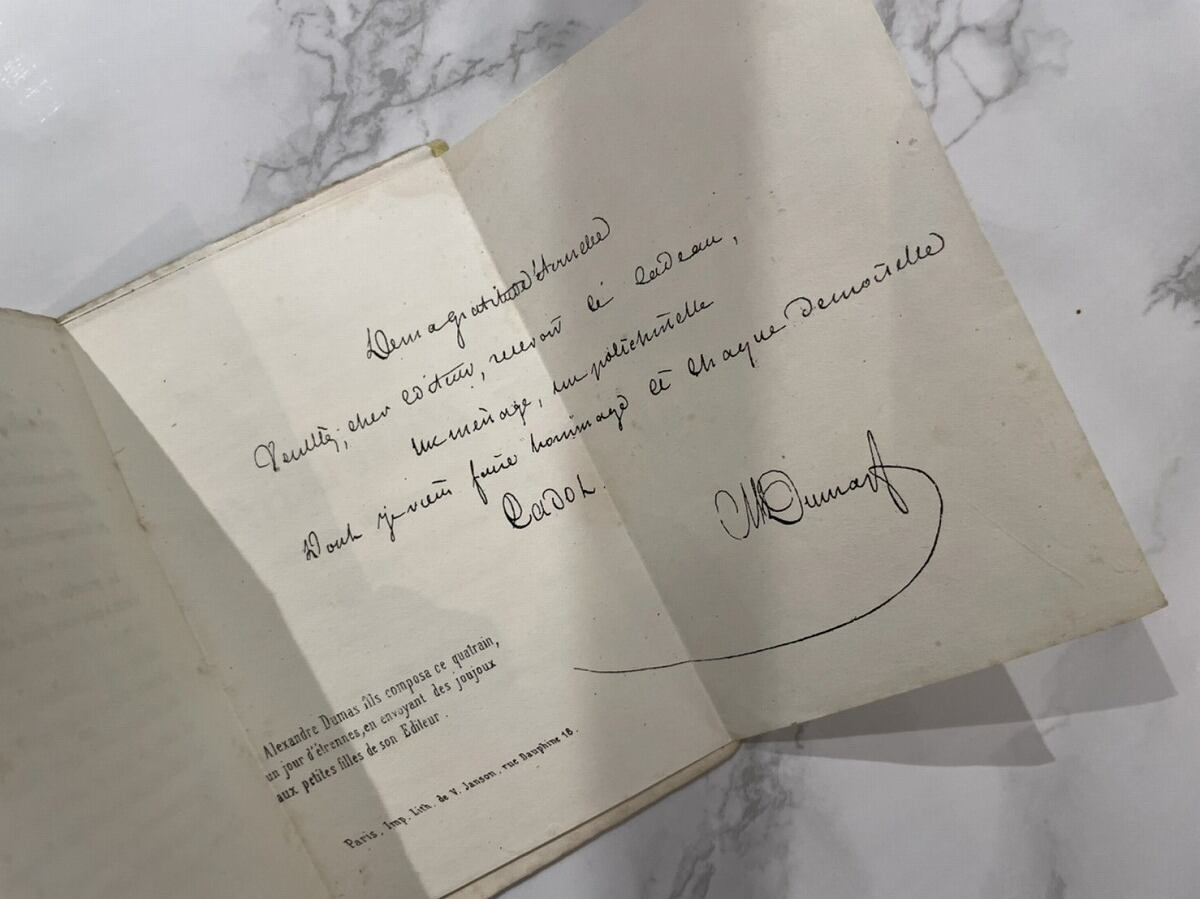 De ma gratitude éternelle
Veuillez, cher éditeur, recevoir ce cadeau,
Un ménage, un polichinelle
Dont je viens faire hommage à chaque demoiselle
Cadot.
A Dumas f
Alexandre Dumas fils composa ce quatrain,
un jour d'étrennes, en envoyant des joujoux
aux petites filles de son Editeur.
Paris. Imp. Lith. de V. Janson, rue Dauphine 18.